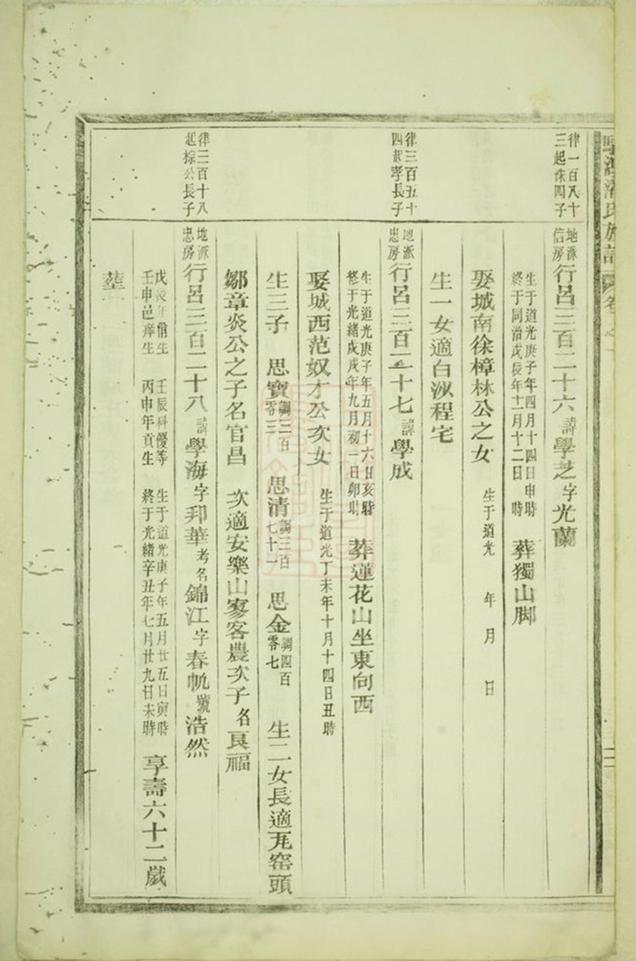 氏族譜
律一百八十
三起洙四子
地派
信房
行呂三百二十六 諱學芝字光蘭
生于道光庚子年四月十四日申時
終于同治戊辰年十二月十二日 時
葬獨山脚
娶城南徐樟林公之女
生于道光 年 月 日
生一女適白沙程宅
律三百五十
四起孝長子
地派
忠房
行呂三百二十七 諱學成
生于道光庚子年五月十六日亥時
終于光緒戊戌年九月初一日卯時
葬蓮花山坐東向西
娶城西范奴才公次女
生于道光丁未年十月十四日丑時
生三子 思寶 調三百零三 思清 調三百七十一 思金 調四百零七 生二女長適瓦窑頭
鄒章炎公之子名官昌 次適安樂山寥客農次子名良福
律二百十八
起棕公長子
地派
忠房
行呂三百二十八 諱學海字邦華考名錦江字春帆號浩然
戊辰年佾生 壬辰科優等 生于道光庚子年五月廿五日寅時
壬申邑庠生 丙申年貢生 終于光緒辛丑年七月廿九日未時
享壽六十二歲
葬